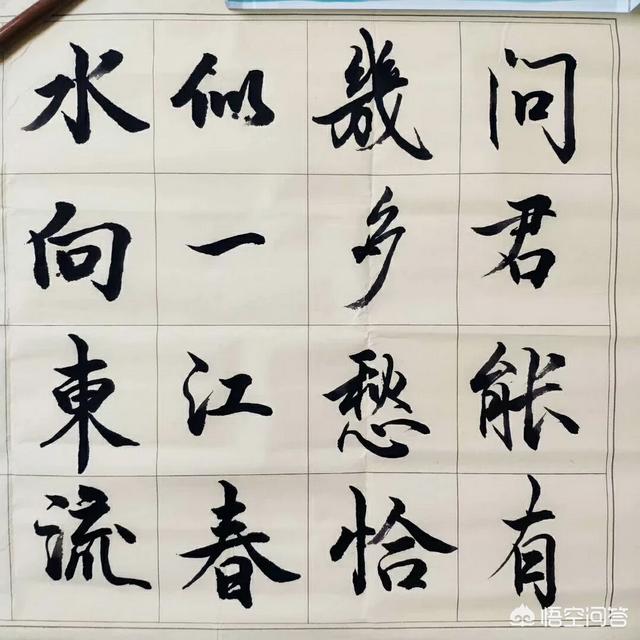 问君能有
幾多愁恰
似一江春
水向東流
悟空问答